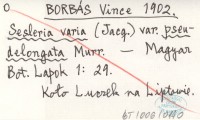 O BORBÁS Vince 1902.
Sesleria varia (Jacq.) var. pseu-
delongata Murr. — Magyar
Bot. Lapok 1: 29.
Koło na Liptowie.